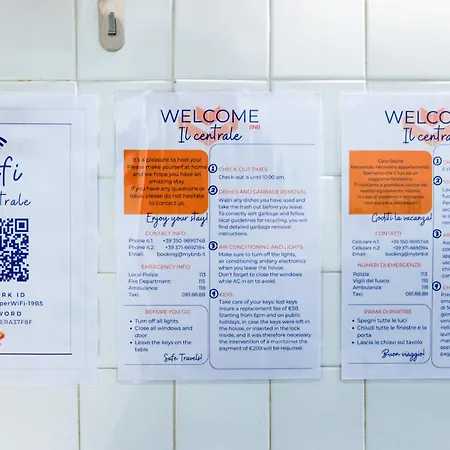 fi
trale
RK ID
perWiFi-19B5
WORD
ERA37F8F
WELCOME
BNB
Il centrale
It's a pleasure to host you!
Please make yourself at home
and we hope you have an
amazing stay.
If you have any questions or
issues please do not hesitate
to contact us.
Enjoy your stay!
CONTACT INFO
Phone n.1: +39 350-9895748
Phone n.2: +39 371-6692194
Email: booking@mybnb.it
EMERGENCY INFO
Local Police: 113
Fire Department: 115
Ambulance: 118
Taxi: 081.88.88
BEFORE YOU GO
Turn off all lights
Close all windows and
door
Leave the keys on the
table
Safe Travels!
1 CHECK-OUT TIMES
Check-out is until 10:00 am
2 DISHES AND GARBAGE REMOVAL
Wash any dishes you have used and
take the trash out before you leave.
To correctly sort garbage and follow
local guidelines for recycling, you will
find detailed garbage removal
instructions.
3 AIR CONDITIONING AND LIGHTS
Make sure to turn off the lights,
air conditioning andany electronics
when you leave the house
Don't forget to close the windows
while AC in on to avoid
KEYS
Take care of your keys: lost keys
insure a replacement fee of €50
Starting from 6pm and on public
holidays, in case the keys were left in
the house, or inserted in the lock
inside, and it was therefore necessary
the intervention of a maintainer the
payment of €200 will be required.
WELCOM
Il centrale
Caro Ospite,
Benvenuto nel nostro appartamento.
CONTATTI
Cellulare n.1: +39 350-989
Cellulare n.2: +39 371-669
Email: booking@m
NUMERI DI EMERGENZA
Polizia:
Vigil del fuoco:
Ambulanza:
Taxi:
PRIMA DI PARTIRE
Spegni tutte le luci
Chiudi tutte le finestre e la
porta
Lascia le chiavi sul tavolo
Buon viaggio!